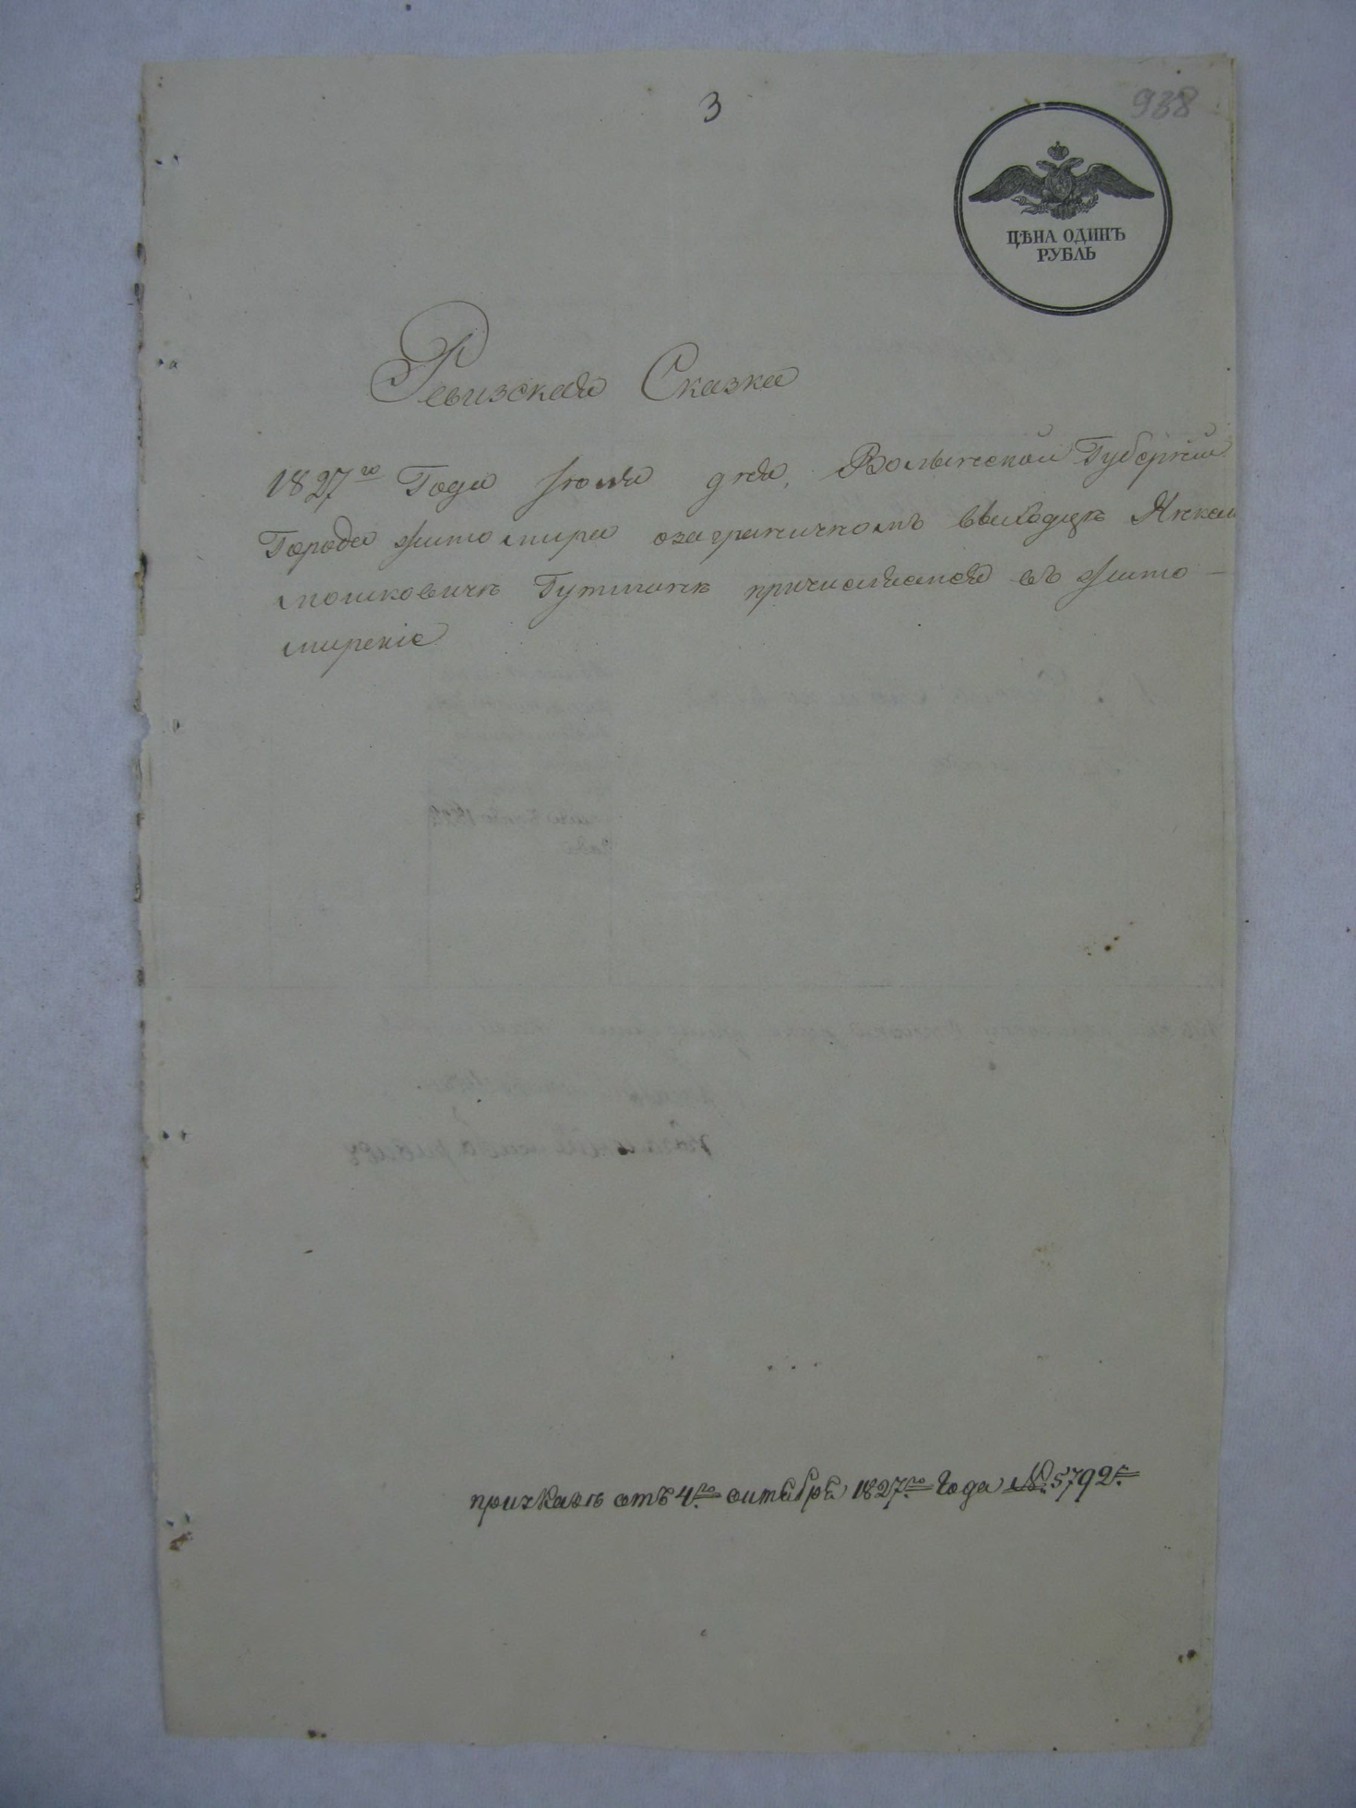 3
938
ЦѢНА ОДИНЪ
РУБЛЬ
Ревизская Сказка
1827го Года Июля дня, Волынской Губернии
Города Житомира озаграничномъ выходцѣ Янкел
мошковичѣ Гутманѣ причисляемся въ Жито-
мирскіе
при указѣ отъ 4го октября 1827го Года № 5792м